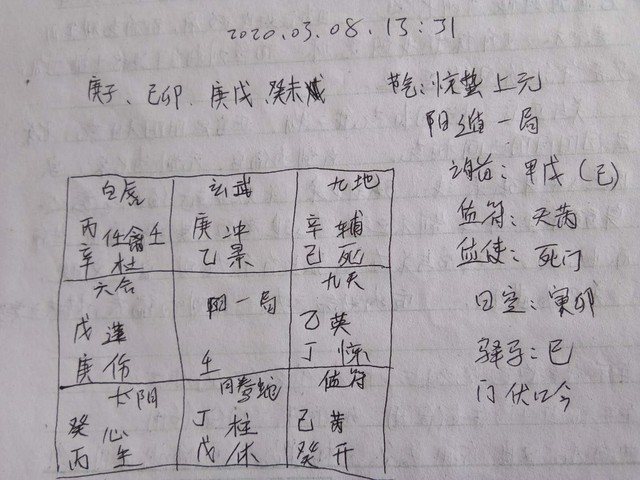 2020.03.08.13:31
庚子、己卯、庚戌、癸未
节气:惊蛰上元
阳遁一局
旬首:甲戌(己)
值符:天芮
值使:死门
日空:寅卯
驿马:巳
门伏吟
白虎
丙 任禽壬
辛 杜
玄武
庚 冲
乙 景
九地
辛 辅
己 死
六合
戊 蓬
庚 伤
阳一局
壬
九天
乙 英
丁 惊
太阴
癸 心
丙 生
腾蛇
丁 柱
戊 休
值符
己 芮
癸 开